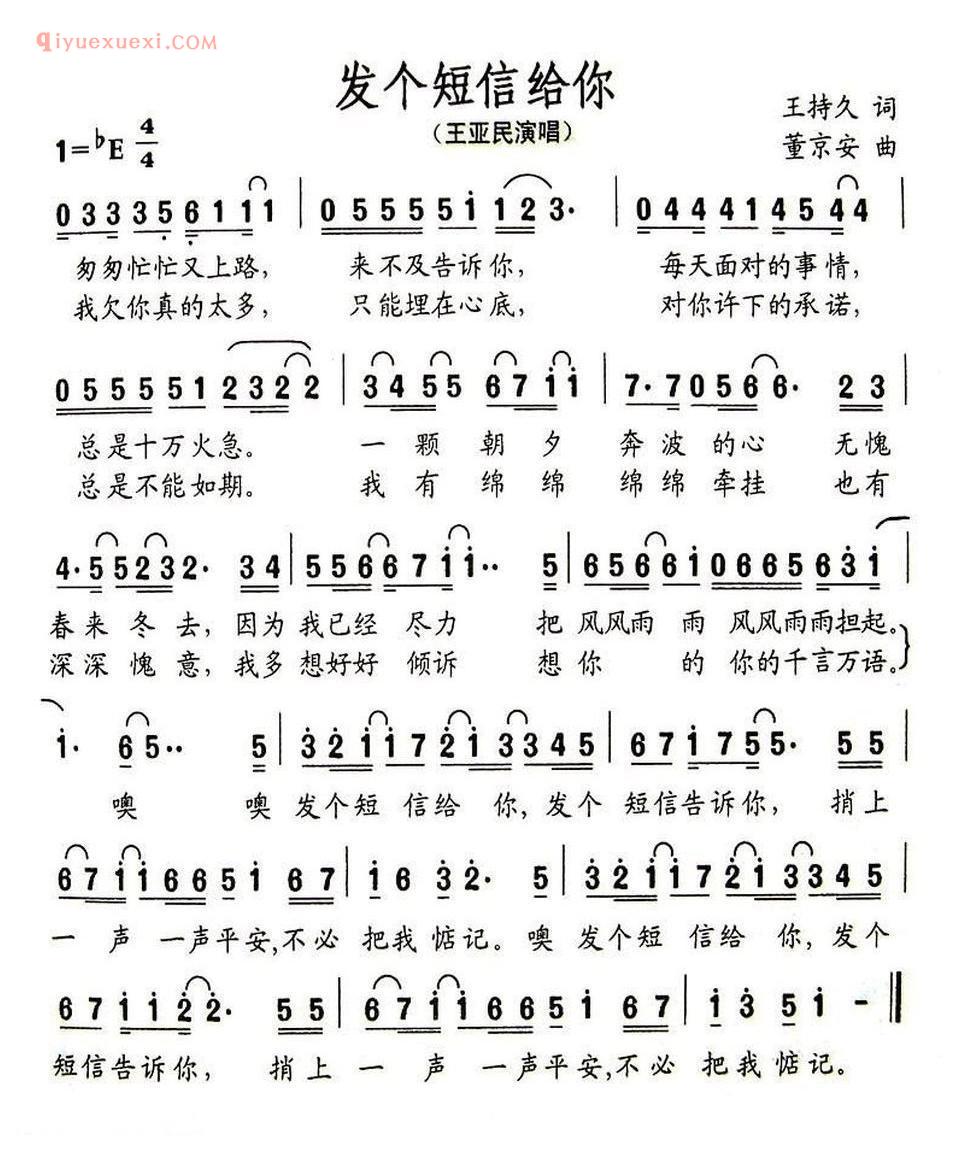 qiyuexuexi.COM
发个短信给你
(王亚民演唱)
王持久 词
董京安 曲
1=♭E 4/4
0 3 3 3 5 6 1 1 1 | 0 5 5 5 5 5 1 1 2 3· | 0 4 4 4 1 4 5 4 4 |
匆匆忙忙又上路, 来不及告诉你, 每天面对的事情,
我欠你真的太多, 只能埋在心底, 对你许下的承诺,
0 5 5 5 5 5 1 2 3 2 2 | 3 4 5 5 6 7 1 1 | 7· 7 0 5 6 6 6· 2 3 |
总是十万火急。 一颗朝夕奔波的心 无愧
总是不能如期。 我有绵绵绵绵牵挂 也有
4· 5 5 2 3 2· 3 4 | 5 5 6 6 6 7 1 1·· 5 | 6 5 6 6 1 0 6 6 5 6 3 1 |
春来冬去, 因为我已经尽力 把风风雨雨 风风雨雨担起。
深深愧意, 我多想好好倾诉 想你的 你的千言万语。
1· 6 5·· 5 | 3 2 1 1 7 2 1 3 3 4 5 | 6 7 1 7 5 5· 5 5 |
噢 噢 发个短信给你, 发个短信告诉你, 捎上
6 7 1 1 6 6 5 1 6 7 | 1 6 3 2· 5 | 3 2 1 1 7 2 1 3 3 4 5 |
一声 一声平安,不必把我惦记。 噢 发个短信给你, 发个
6 7 1 1 2 2· 5 5 | 6 7 1 1 6 6 5 1 6 7 | 1 3 5 1 - ‖
短信告诉你, 捎上一声 一声平安,不必把我惦记。